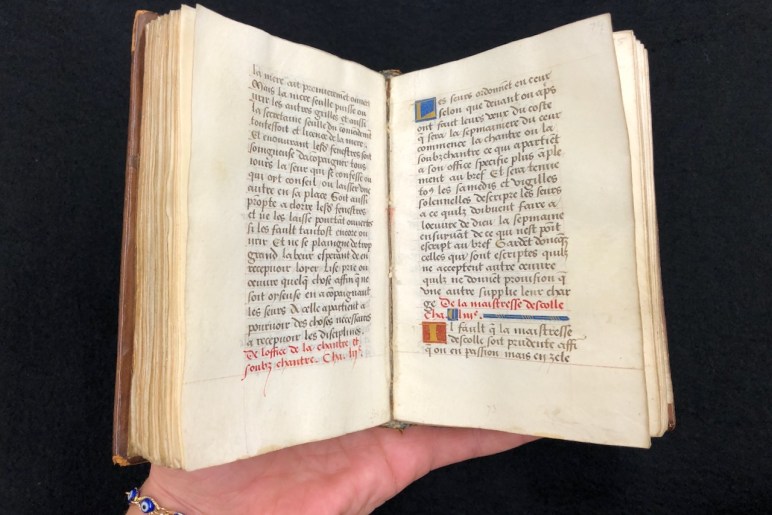 la mere ait premierement ouvert
Mais la mere seulle puisse ou
urir les autres grilles et aussi
la secretaine seulle du
confessort et licence de la mere.
Et en ouvrant lesd fenestres soit
songneuse dacompaigner tous
iours la seur qui se confesse ou
qui oyt conseil ou laisser une
autre en sa place Soit aussi
prōpte a clorre lesd fenestres
et ne les laisse pourtāt ouvertes
si les fault tantost encore ou
urir Et ne se plaigne de trop
grand labeur esperāt de en
recepvoir loyer Lise prie ou
oeuvre quelq̄ chose affin q̄ ne
soit oyseuse en acōpaignant
les seurs A celle apartient a
pourvoir des choses necessaires
a recepvoir les disciplines.
De loffice de la chantre et
soubz chantre. Cha.
Les seurs ordonnēt en ceur
selon que devant ou aps
ont faict leurs veux du coste
q̄ sera la sepmainiere du ceur
commence la chantre ou la
soubzchantre ce qui apartiēt
a son office specifie plus a ple
ment au bref Et sera tenue
to9 les samedis et vigilles
solennelles descripre les seurs
a ce qulz doibvent faire a
loeuvre de dieu la sepmaine
ensuivāt de ce qui nest poīt
escript au bref Gardēt doncq̄s
celles qui sont escriptes qulz
ne acceptent autre oeuvre
qulz ne donnēt provision q̄
une autre supplie leur char
ge De la maistresse descolle
Cha.
Il fault q̄ la maistresse
descolle soit prudente affi
q̄ on en passion mais en zele